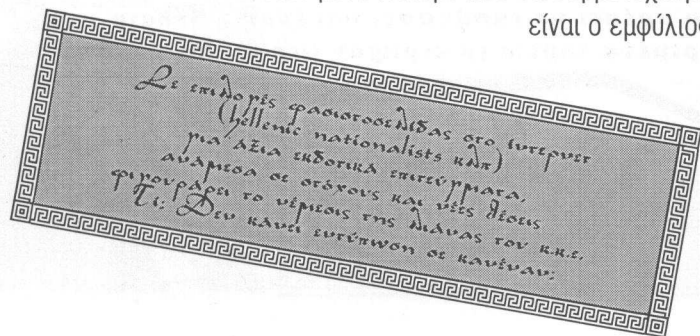 είναι ο εμφύλιος
Σε επιλογές φασιστοσελίδας στο ίντερνετ
(hellenic nationalists κλπ)
για άξια εκδοτικά επιτεύγματα,
ανάμεσα σε στόχους και νέες θέσεις
φιγουράρει το νέμεσις της λιάνας του κ.κ.ε.
Τι; Δεν κάνει εντύπωση σε κανέναν;